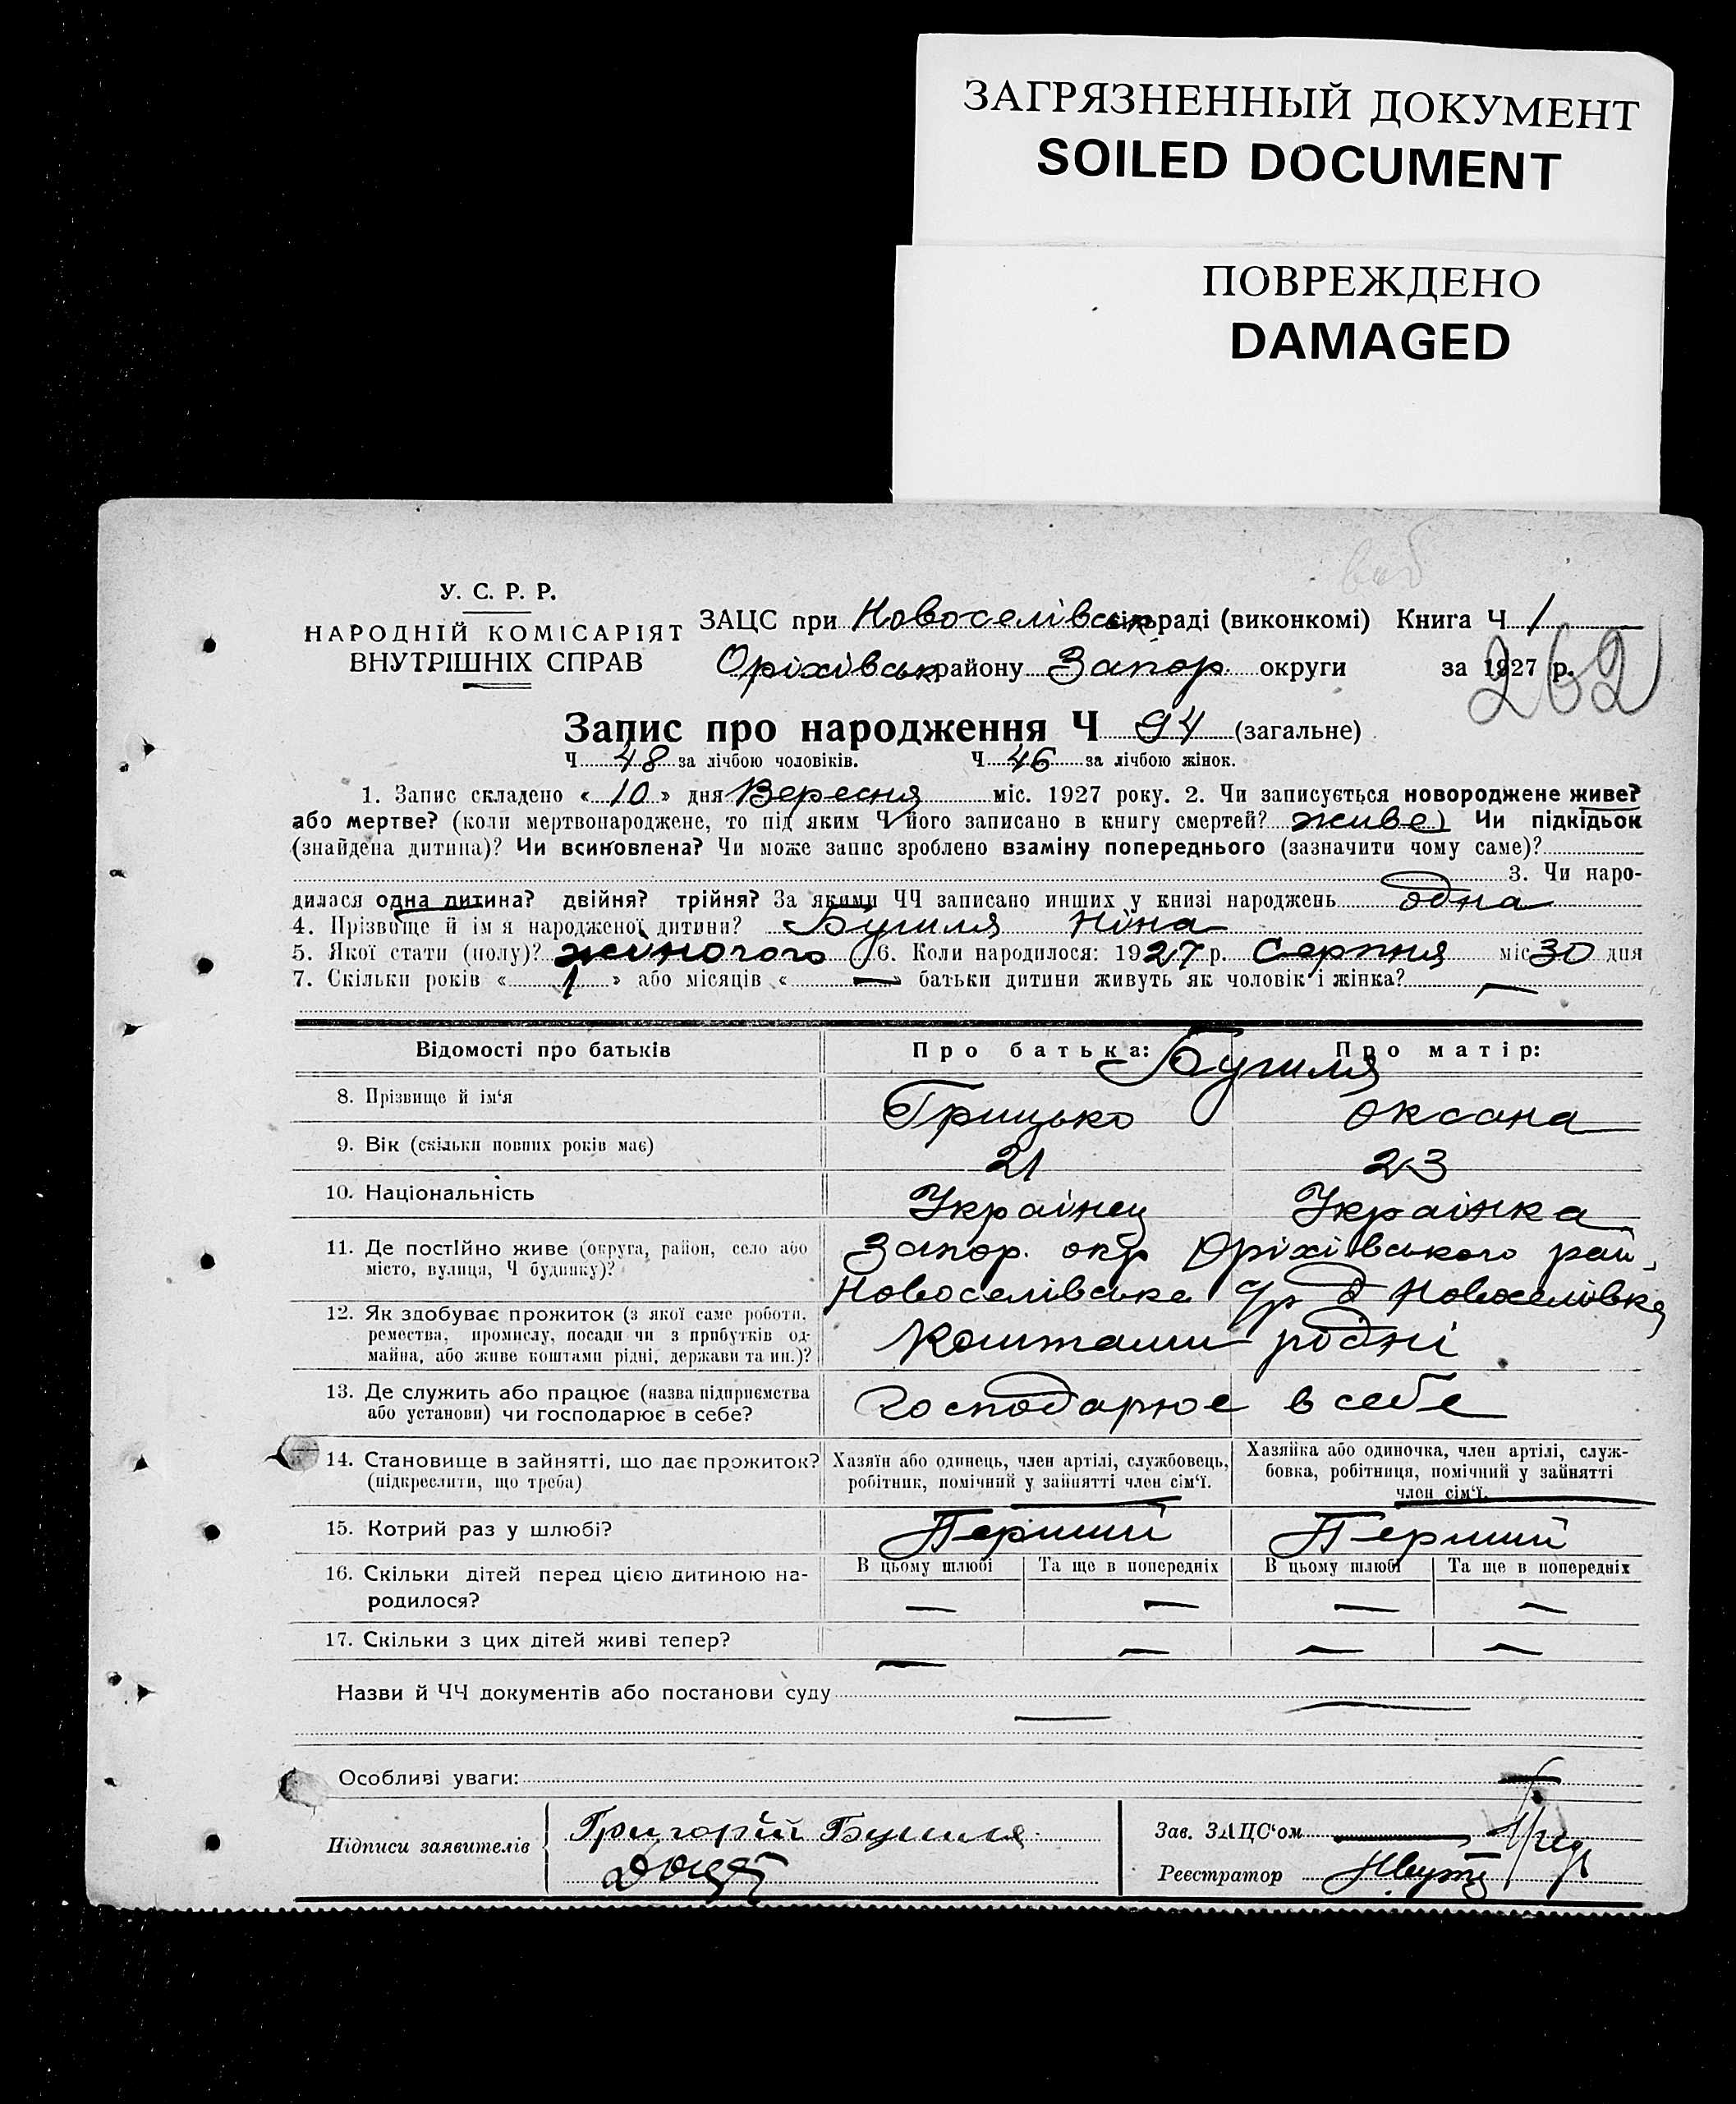 ЗАГРЯЗНЕННЫЙ ДОКУМЕНТ
SOILED DOCUMENT
ПОВРЕЖДЕНО
DAMAGED
У. С. Р. Р.
НАРОДНІЙ КОМІСАРІЯТ
ВНУТРІШНІХ СПРАВ
ЗАЦС при Новоселівськ сільраді (виконкомі) Книга Ч 1
Оріхівськ району Запор. округи за 1927 р.
262
Запис про народження Ч 94 (загальне)
Ч 48 за лічбою чоловіків. Ч 46 за лічбою жінок.
1. Запис складено « 10 » дня Вересня міс. 1927 року. 2. Чи записується новороджене живе?
або мертве? (коли мертвонароджене, то під яким Ч його записано в книгу смертей? живе) Чи підкідьок
(знайдена дитина)? Чи всиновлена? Чи може запис зроблено взаміну попереднього (зазначити чому саме)?
3. Чи наро-
дилася одна дитина? двійня? трійня? За якими ЧЧ записано инших у книзі народжень одна
4. Прізвище й ім я народженої дитини? Бугиля Ніна
5. Якої стати (полу)? жіночого 6. Коли народилося: 1927 р. Серпня міс 30 дня
7. Скільки років « 1 » або місяців « — » батьки дитини живуть як чоловік і жінка? —
Відомості про батьків Про батька: Про матір:
Бугиля
8. Прізвище й ім‘я Грицько Оксана
9. Вік (скільки повних років має) 21 23
10. Національність Українец Українка
11. Де постійно живе (округа, район, село або Запор. окр Оріхівського рай,
місто, вулиця, Ч будинку)? Новоселівська с/р Новоселівка
12. Як здобуває прожиток (з якої саме роботи,
ремества, промислу, посади чи з прибутків од- Коштами рідні
майна, або живе коштами рідні, держави та ин.)?
13. Де служить або працює (назва підприємства Господарює в себе
або установи) чи господарює в себе?
14. Становище в зайнятті, що дає прожиток? Хазяїн або одинець, член артілі, службовець, Хазяйка або одиночка, член артілі, служ-
(підкреслити, що треба) робітник, помічний у зайнятті член сім‘ї. бовка, робітниця, помічний у зайнятті
член сім‘ї.
15. Котрий раз у шлюбі? Перший Перший
16. Скільки дітей перед цією дитиною на- В цьому шлюбі Та ще в попередніх В цьому шлюбі Та ще в попередніх
родилося? — — — —
17. Скільки з цих дітей живі тепер? — — — —
Назви й ЧЧ документів або постанови суду — —
Особливі уваги: —
Підписи заявителів Григорій Бугиля Зав. ЗАЦС‘ом
Реєстратор